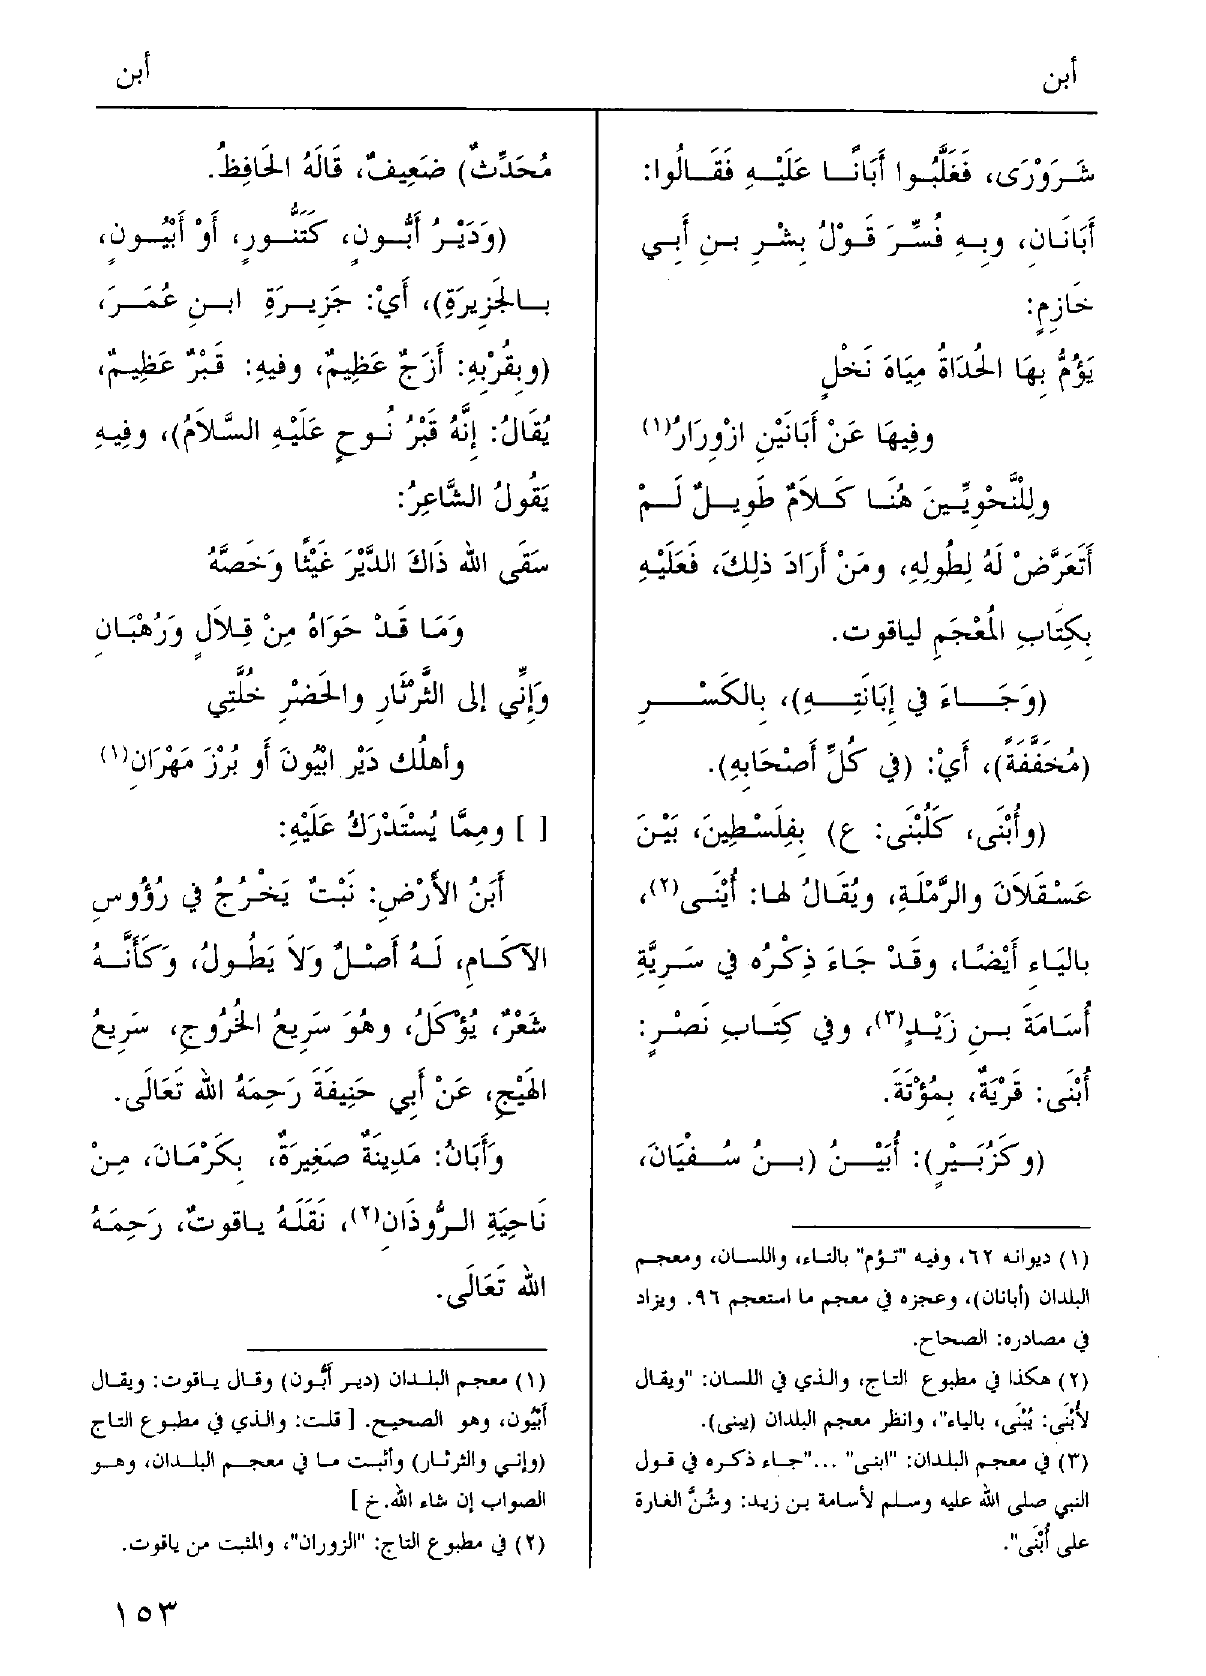 أبن
أبن
شَرَوْرَى، فَغَلَّبُوا أَبَانًا عَلَيْهِ فَقَالُوا:
أَبَانَانِ، وبِهِ فُسِّرَ قَوْلُ بِشْرِ بنِ أَبي
خَازِمٍ:
يَؤُمُّ بِهَا الحُدَاةُ مِيَاهَ نَخْلٍ
وفِيهَا عَنْ أَبَانَيْنِ ازْوِرَارُ(١)
ولِلنَّحْوِيِّينَ هُنَا كَلاَمٌ طَوِيلٌ لَمْ
أَتَعَرَّضْ لَهُ لِطُولِهِ، ومَنْ أَرَادَ ذلِكَ، فَعَلَيْهِ
بِكِتَابِ المُعْجَمِ لياقوت.
(وَجَاءَ في إبَانَتِهِ)، بِالكَسْرِ
(مُخَفَّفَةً)، أَيْ: (في كُلِّ أَصْحَابِهِ).
(وأُبْنَى، كَلُبْنَى: ع) بِفِلَسْطِينَ، بَيْنَ
عَسْقَلاَنَ والرَّمْلَةِ، ويُقَالُ لها: أُيْنَى(٢)،
بالياءِ أَيْضًا، وقَدْ جَاءَ ذِكْرُه في سَرِيَّةِ
أُسَامَةَ بنِ زَيْدٍ(٣)، وفي كِتَابِ نَصْرٍ:
أُبْنَى: قَرْيَةٌ، بِمُؤْتَةَ.
(وكَزُبَيْرٍ): أُبَيْنُ (بنُ سُفْيَانَ،
(١) ديوانه ٦٢، وفيه "تؤم" بالتاء، واللسان، ومعجم
البلدان (أبانان)، وعجزه في معجم ما استعجم ٩٦. ويزاد
في مصادره: الصحاح.
(٢) هكذا في مطبوع التاج، والذي في اللسان: "ويقال
لأُبْنَى: يُبْنَى، بالياء"، وانظر معجم البلدان (يبنى).
(٣) في معجم البلدان: "ابنى" ..."جاء ذكره في قول
النبي صلى الله عليه وسلم لأسامة بن زيد: وشُنَّ الغارة
على أُبْنَى".
مُحَدِّثٌ) ضَعِيفٌ، قَالَهُ الحَافِظُ.
(وَدَيْرُ أَبُّونٍ، كَتَنُّورٍ، أَوْ أَبْيُونٍ،
بالجَزِيرَةِ)، أَيْ: جَزِيرَةِ ابنِ عُمَرَ،
(وبِقُرْبِهِ: أَزَجٌ عَظِيمٌ، وفيهِ: قَبْرٌ عَظِيمٌ،
يُقَالُ: إِنَّهُ قَبْرُ نُوحٍ عَلَيْهِ السَّلاَمُ)، وفِيهِ
يَقُولُ الشَّاعِرُ:
سَقَى اللهُ ذَاكَ الدَّيْرَ غَيْثًا وَخَصَّهُ
وَمَا قَدْ حَوَاهُ مِنْ قِلاَلٍ وَرُهْبَانِ
وَإِنِّي إلى الثَّرْثَارِ والحَضْرِ خُلَّتِي
وأَهْلُكِ دَيْرِ ابْيُونَ أَو بُرْزَ مَهْرَانِ(١)
[ ] ومِمَّا يُسْتَدْرَكُ عَلَيْهِ:
أَبَنُ الأَرْضِ: نَبْتٌ يَخْرُجُ في رُؤُوسِ
الآكَامِ، لَهُ أَصْلٌ وَلاَ يَطُولُ، وَكَأَنَّهُ
شَعْرٌ، يُؤْكَلُ، وهُوَ سَرِيعُ الخُرُوجِ، سَرِيعُ
الهَيْجِ، عَنْ أَبي حَنِيفَةَ رَحِمَهُ اللهُ تَعَالَى.
وَأَبَانُ: مَدِينَةٌ صَغِيرَةٌ، بِكَرْمَانَ، مِنْ
نَاحِيَةِ الرُّوذَانِ(٢)، نَقَلَهُ ياقوتٌ، رَحِمَهُ
اللهُ تَعَالَى.
(١) معجم البلدان (دير أبّون) وقال ياقوت: ويقال
أَبْيُون، وهو الصحيح. [ قلت: والذي في مطبوع التاج
(وإني والثرثار) وأثبت ما في معجم البلدان، وهو
الصواب إن شاء الله.خ ]
(٢) في مطبوع التاج: "الزوران"، والمثبت من ياقوت.
١٥٣